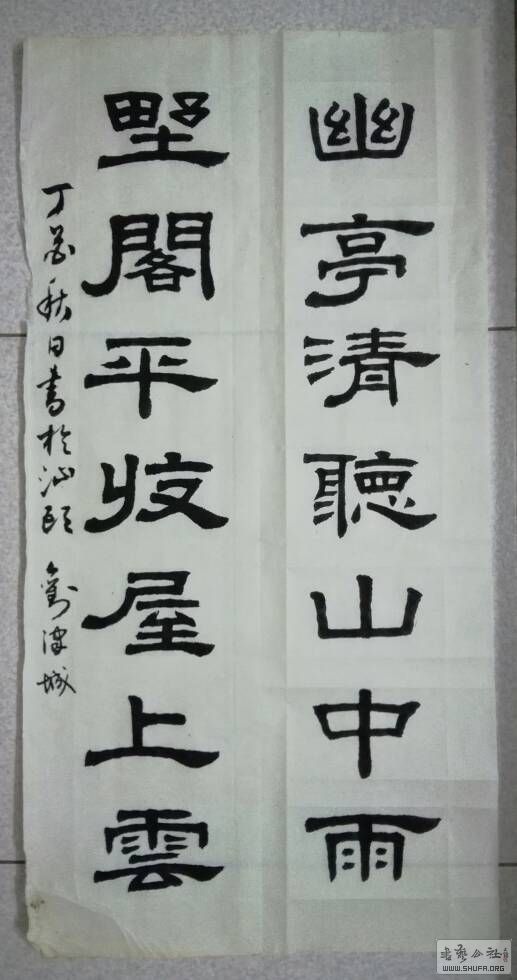 幽亭清聽山中雨
野閣平收屋上雲
丁酉秋日書於汕頭 劉城
书艺公社
WWW.SHUFA.ORG